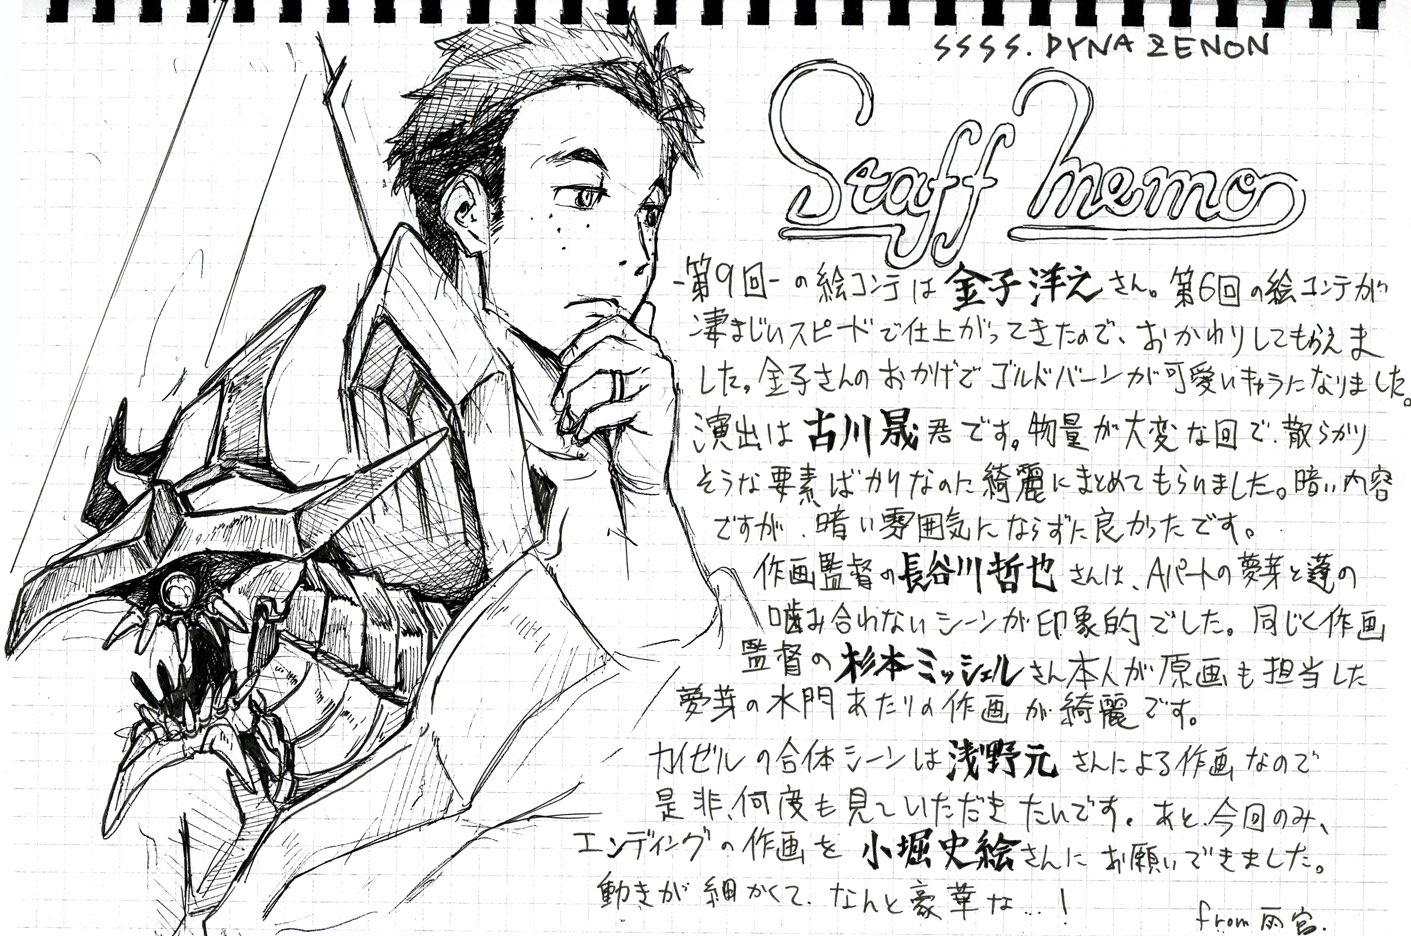 SSSS.DYNAZENON
Staff Memo
-第9回-の絵コンテは金子洋之さん。第6回の絵コンテが
凄まじいスピードで仕上がってきたので、おかわりしてもらえま
した。金子さんのおかげでゴルドバーンが可愛いキャラになりました。
演出は古川晟君です。物量が大変な回で、散らかり
そうな要素ばかりなのに綺麗にまとめてもらいました。暗い内容
ですが、暗い雰囲気にならずに良かったです。
作画監督の長谷川哲也さんは、Aパートの夢芽と蓬の
噛み合わないシーンが印象的でした。同じく作画
監督の杉本ミッシェルさん本人が原画も担当した
夢芽の水門あたりの作画が綺麗です。
カイゼルの合体シーンは浅野元さんによる作画なので
是非、何度も見ていただきたいです。あと、今回のみ、
エンディングの作画を小堀史絵さんにお願いできました。
動きが細かくて、なんと豪華な…!
from 雨宮.